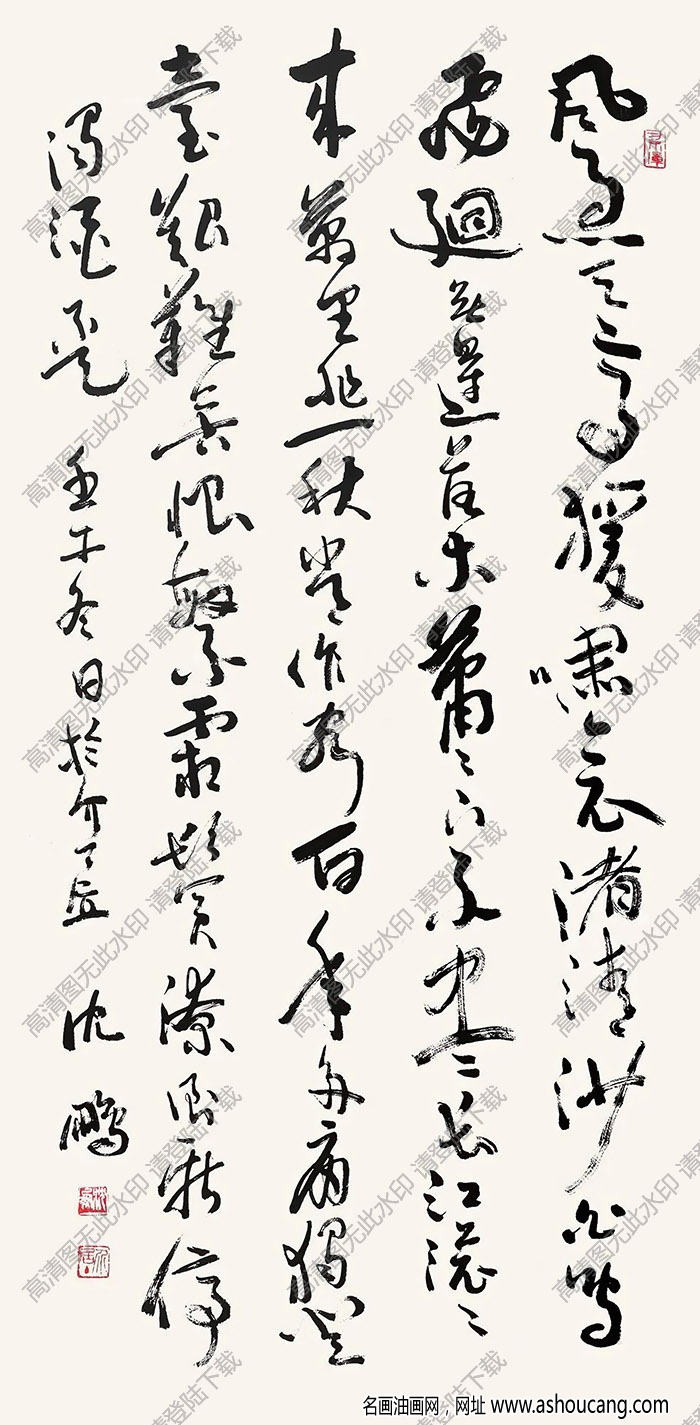 風急天高猨嘯哀渚清沙白鳥
飛廻無邊落木蕭〻下不盡長江滾〻
来萬里悲秋常作客百年多病獨登
臺艱難苦恨繁霜鬢潦倒新停
濁酒盃 壬午冬日於介居 沈鵬
高清图无此水印 请登陆下载
名画油画网，网址 www.ashoucang.com